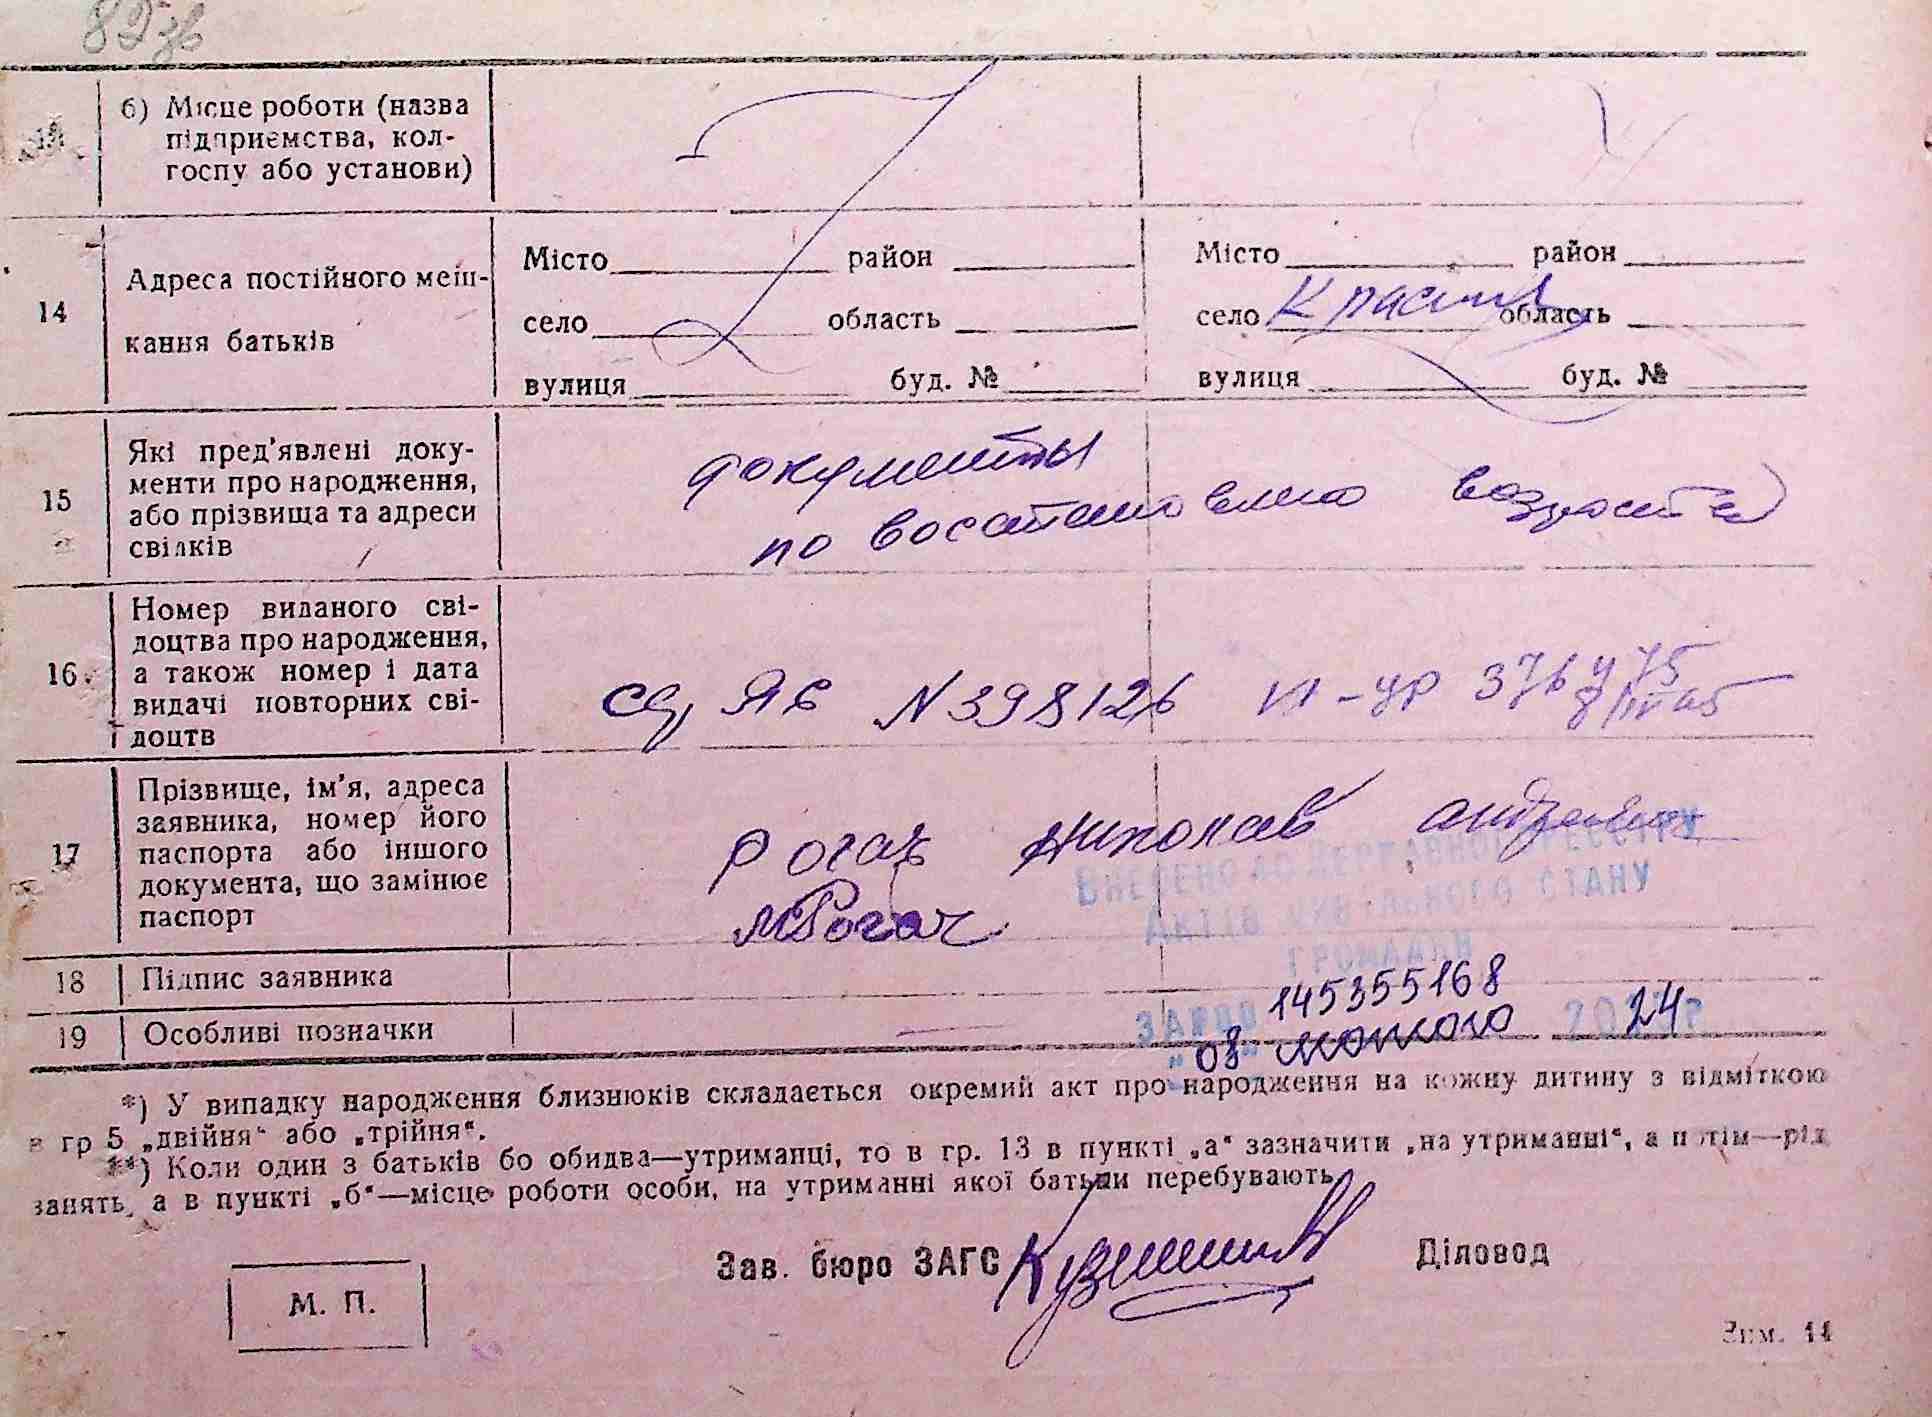 82 зв
б) Місце роботи (назва
підприємства, кол-
госпу або установи)
14
Адреса постійного меш-
кання батьків
Місто район
село область
вулиця буд. №
Місто район
село область
вулиця буд. №
15
Які пред'явлені доку-
менти про народження,
або прізвища та адреси
свідків
документы
по возраста
16
Номер виданого сві-
доцтва про народження,
а також номер і дата
видачі повторних сві-
доцтв
N 398126
17
Прізвище, ім'я, адреса
заявника, номер його
паспорта або іншого
документа, що замінює
паспорт
Рогач Николай
МРогач
Внесено до Державного реєстру
актів цивільного стану
громадян
18 Підпис заявника
за №00 145355168
19 Особливі позначки
"08" лютого 2024 р
*) У випадку народження близнюків складається окремий акт про народження на кожну дитину з відміткою
в гр 5 „двійня“ або „трійня“.
**) Коли один з батьків бо обидва—утриманці, то в гр. 13 в пункті „а“ зазначити „на утриманні“, а потім—рід
занять, а в пункті „б“—місце роботи особи, на утриманні якої батьки перебувають
Зав. бюро ЗАГС Діловод
М. П.
Зам. 14